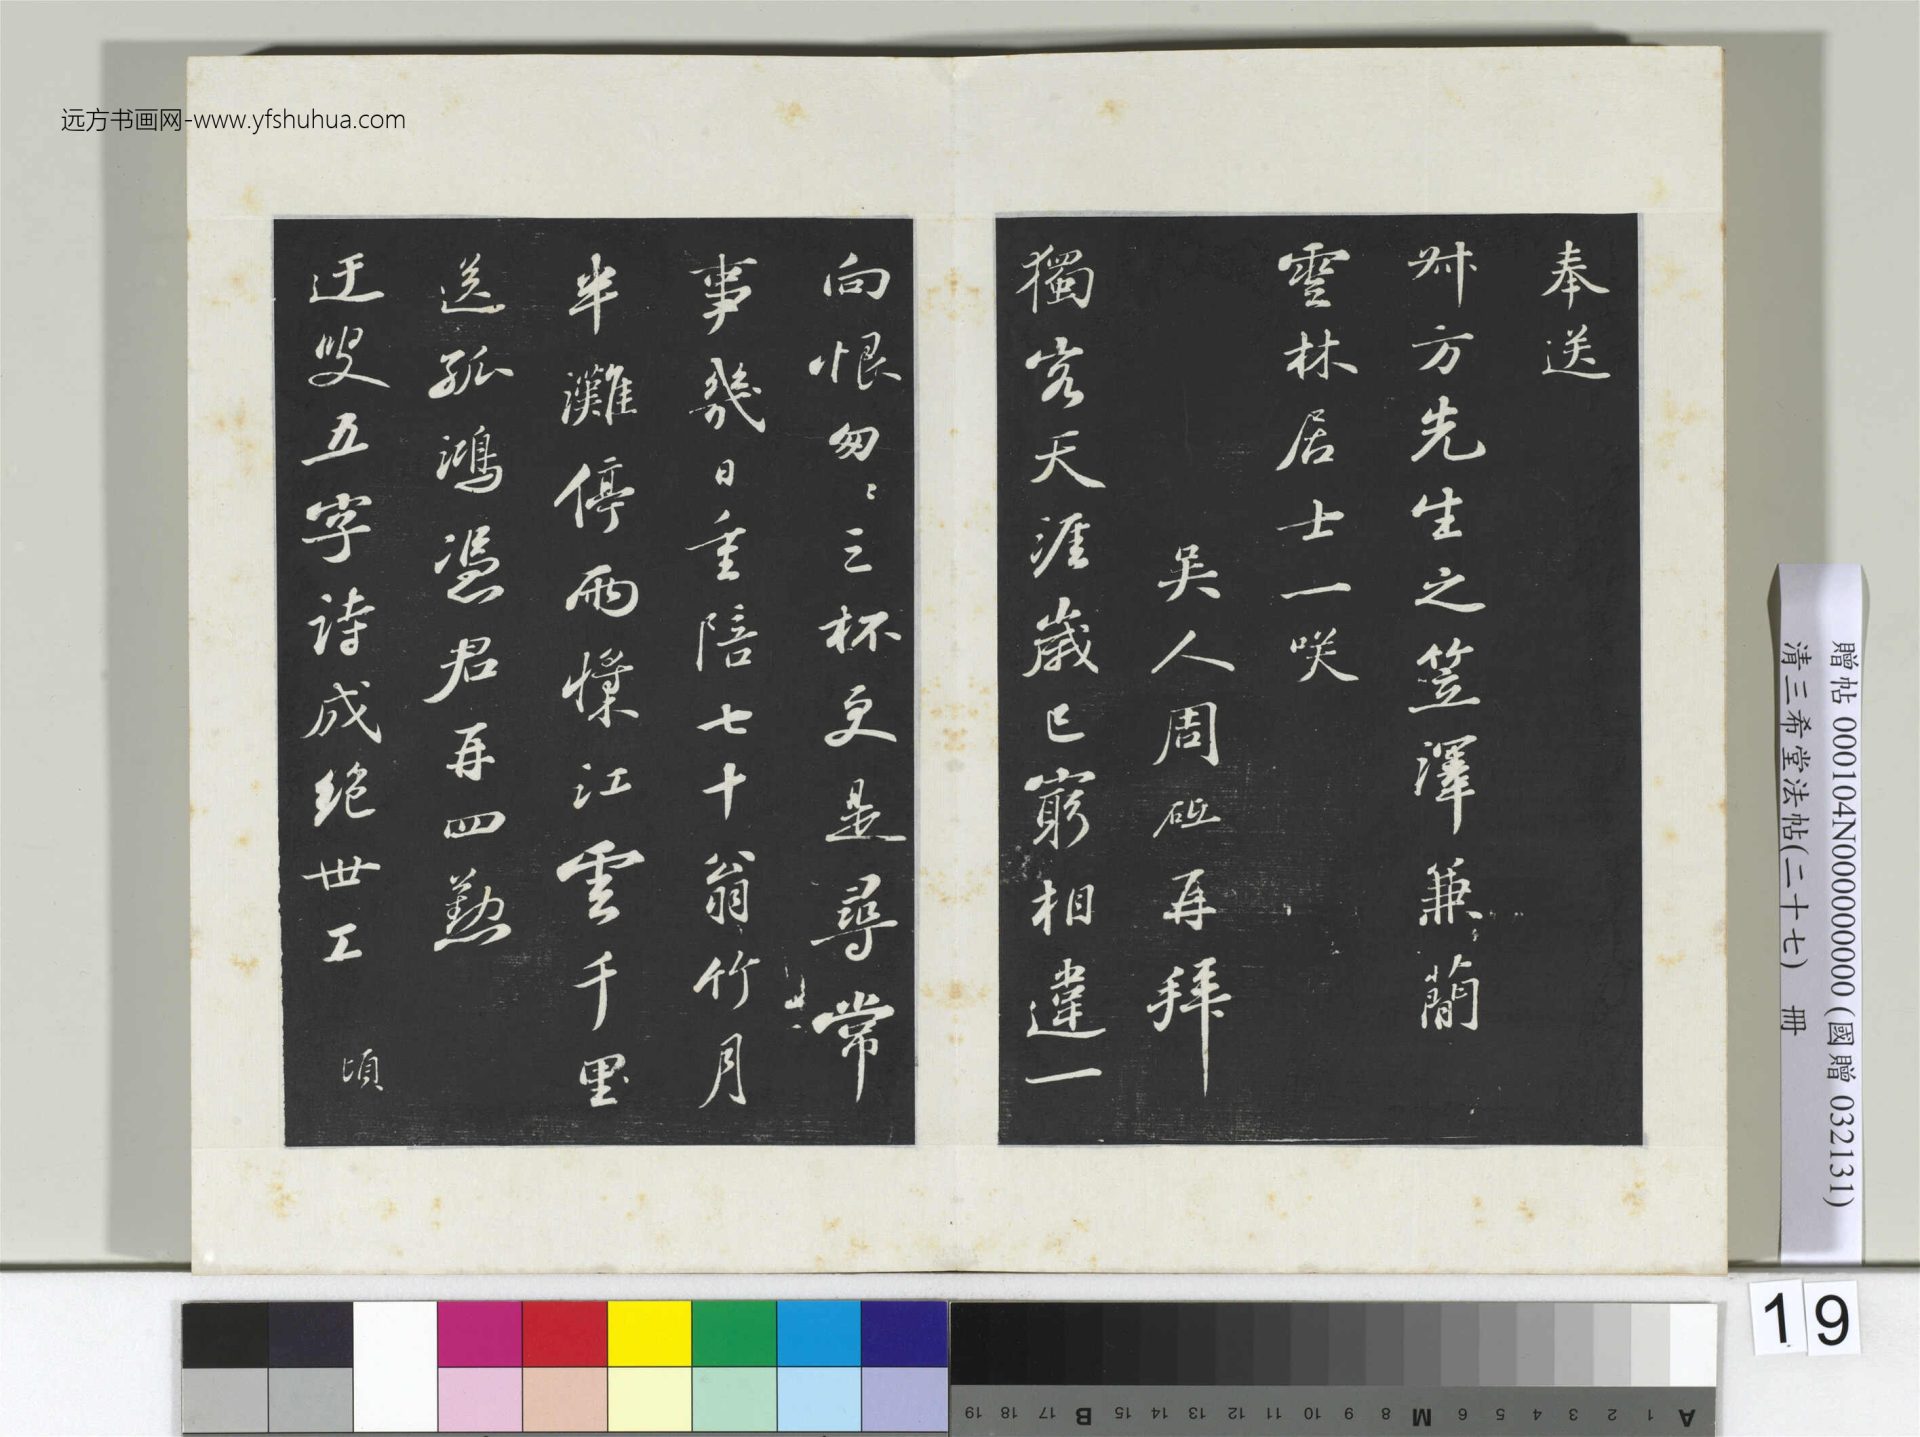 奉送
叔方先生之笠澤兼蕳
雲林居士一咲
吳人周砥再拜
獨客天涯歲已窮相違一
向恨匆〻三杯更是尋常
事幾日重陪七十翁竹月
半灘停雨槳江雲千里
送孤鴻憑君再四懃
迂叟五字詩成絕世工 頃
远方书画网-www.yfshuhua.com
贈帖 000104N000000000 (國贈 032131)
清三希堂法帖(二十七) 冊
19
A 1 2 3 4 5 6 M 8 9 10 11 12 13 14 15 B 17 18 19